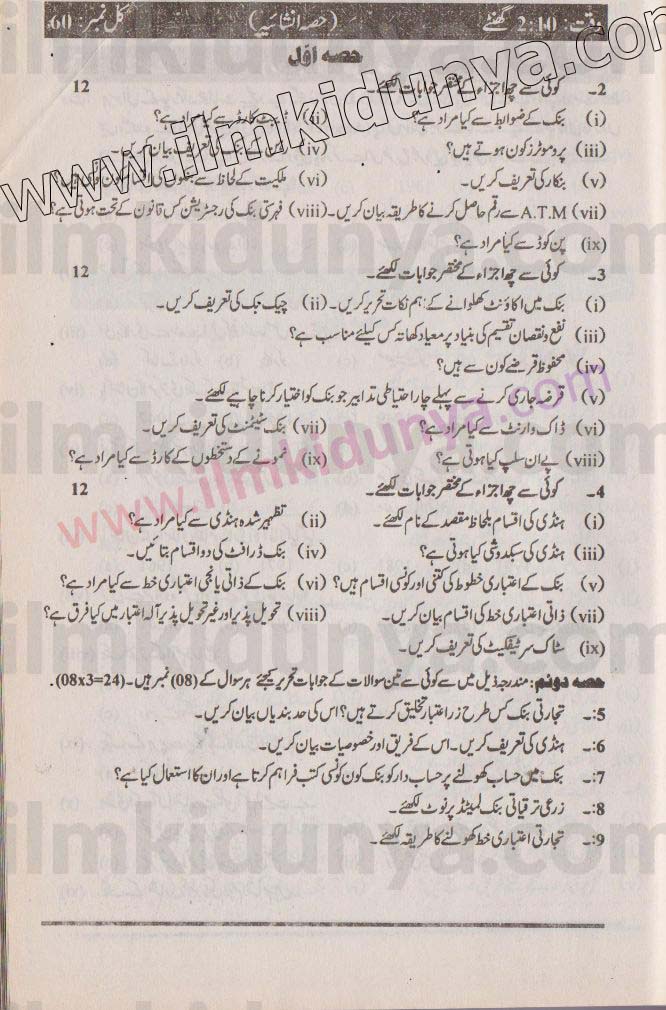 وقت: 2:10 گھنٹے (حصہ انشائیہ) کل نمبر: 60
حصہ اوّل
2۔ کوئی سے چھ اجزاء کے مختصر جوابات لکھئے۔ 12
(i) بنک کے ضوابط سے کیا مراد ہے؟ (ii) ڈیبٹ کارڈ سے کیا مراد ہے؟
(iii) پروموٹرز کون ہوتے ہیں؟ (iv) بنک کی تعریف بیان کریں۔
(v) بنکار کی تعریف کریں۔ (vi) ملکیت کے لحاظ سے بنکوں کی اقسام کون
(vii) A.T.M سے رقم حاصل کرنے کا طریقہ بیان کریں۔ (viii) فہرستی بنک کی رجسٹریشن کس قانون کے تحت ہوتی ہے؟
(ix) پن کوڈ سے کیا مراد ہے؟
3۔ کوئی سے چھ اجزاء کے مختصر جوابات لکھئے۔ 12
(i) بنک میں اکاؤنٹ کھلوانے کے اہم نکات تحریر کریں۔ (ii) چیک بک کی تعریف کریں۔
(iii) نفع و نقصان تقسیم کی بنیاد پر معیاد کھاتہ کس کیلئے مناسب ہے؟
(iv) محفوظ قرضے کون سے ہیں؟
(v) قرضہ جاری کرنے سے پہلے چار احتیاطی تدابیر جو بنک کو اختیار کرنا چاہیے لکھئے۔
(vi) ڈاک وارنٹ سے کیا مراد ہے؟ (vii) بنک سٹیٹمنٹ کی تعریف کریں۔
(viii) پے ان سلپ کیا ہوتی ہے؟ (ix) نمونے کے دستخطوں کے کارڈ سے کیا مراد ہے؟
4۔ کوئی سے چھ اجزاء کے مختصر جوابات لکھئے۔ 12
(i) ہنڈی کی اقسام بلحاظ مقصد کے نام لکھئے۔ (ii) تظہیر شدہ ہنڈی سے کیا مراد ہے؟
(iii) ہنڈی کی سبکدوشی کیا ہوتی ہے؟ (iv) بنک ڈرافٹ کی دو اقسام بتائیں۔
(v) بنک کے اعتباری خطوط کی کتنی اور کونسی اقسام ہیں؟ (vi) بنک کے ذاتی یا نجی اعتباری خط سے کیا مراد ہے؟
(vii) ذاتی اعتباری خط کی اقسام بیان کریں۔ (viii) تحویل پذیر اور غیر تحویل پذیر آلہ اعتبار میں کیا فرق ہے؟
(ix) سٹاک سرٹیفکیٹ کی تعریف کریں۔
حصہ دوئم: مندرجہ ذیل میں سے کوئی سے تین سوالات کے جوابات تحریر کیجئے ہر سوال کے (08) نمبر ہیں۔ (08x3=24).
5:۔ تجارتی بنک کس طرح زر اعتبار تخلیق کرتے ہیں؟ اس کی حد بندیاں بیان کریں۔
6:۔ ہنڈی کی تعریف کریں۔ اس کے فریق اور خصوصیات بیان کریں۔
7:۔ بنک میں حساب کھولنے پر حساب دار کو بنک کون کونسی کتب فراہم کرتا ہے اور ان کا استعمال کیا ہے؟
8:۔ زرعی ترقیاتی بنک لمیٹڈ پر نوٹ لکھئے۔
9:۔ تجارتی اعتباری خط کھولنے کا طریقہ لکھئے۔
www.ilmkidunya.com
www.ilmkidunya.com
ilmkidunya.com
ilmkidunya.com
ilmkidunya.com
ilmkidunya.com
ilmkidunya.com
ilmkidunya.com